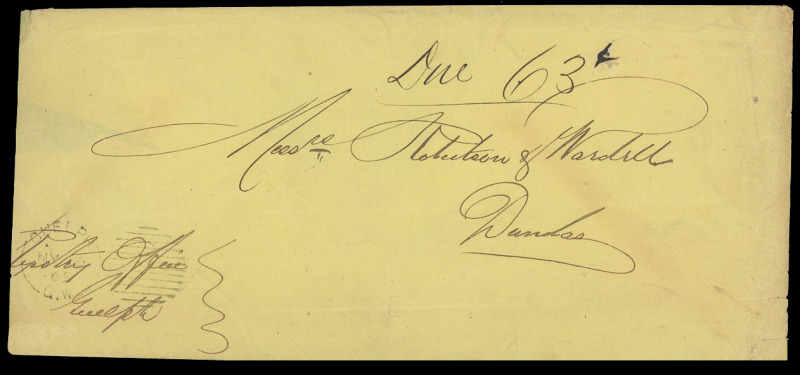 Due 63¢
Messrs Robertson & Wardell
Dundas
Registry Office
Guelph